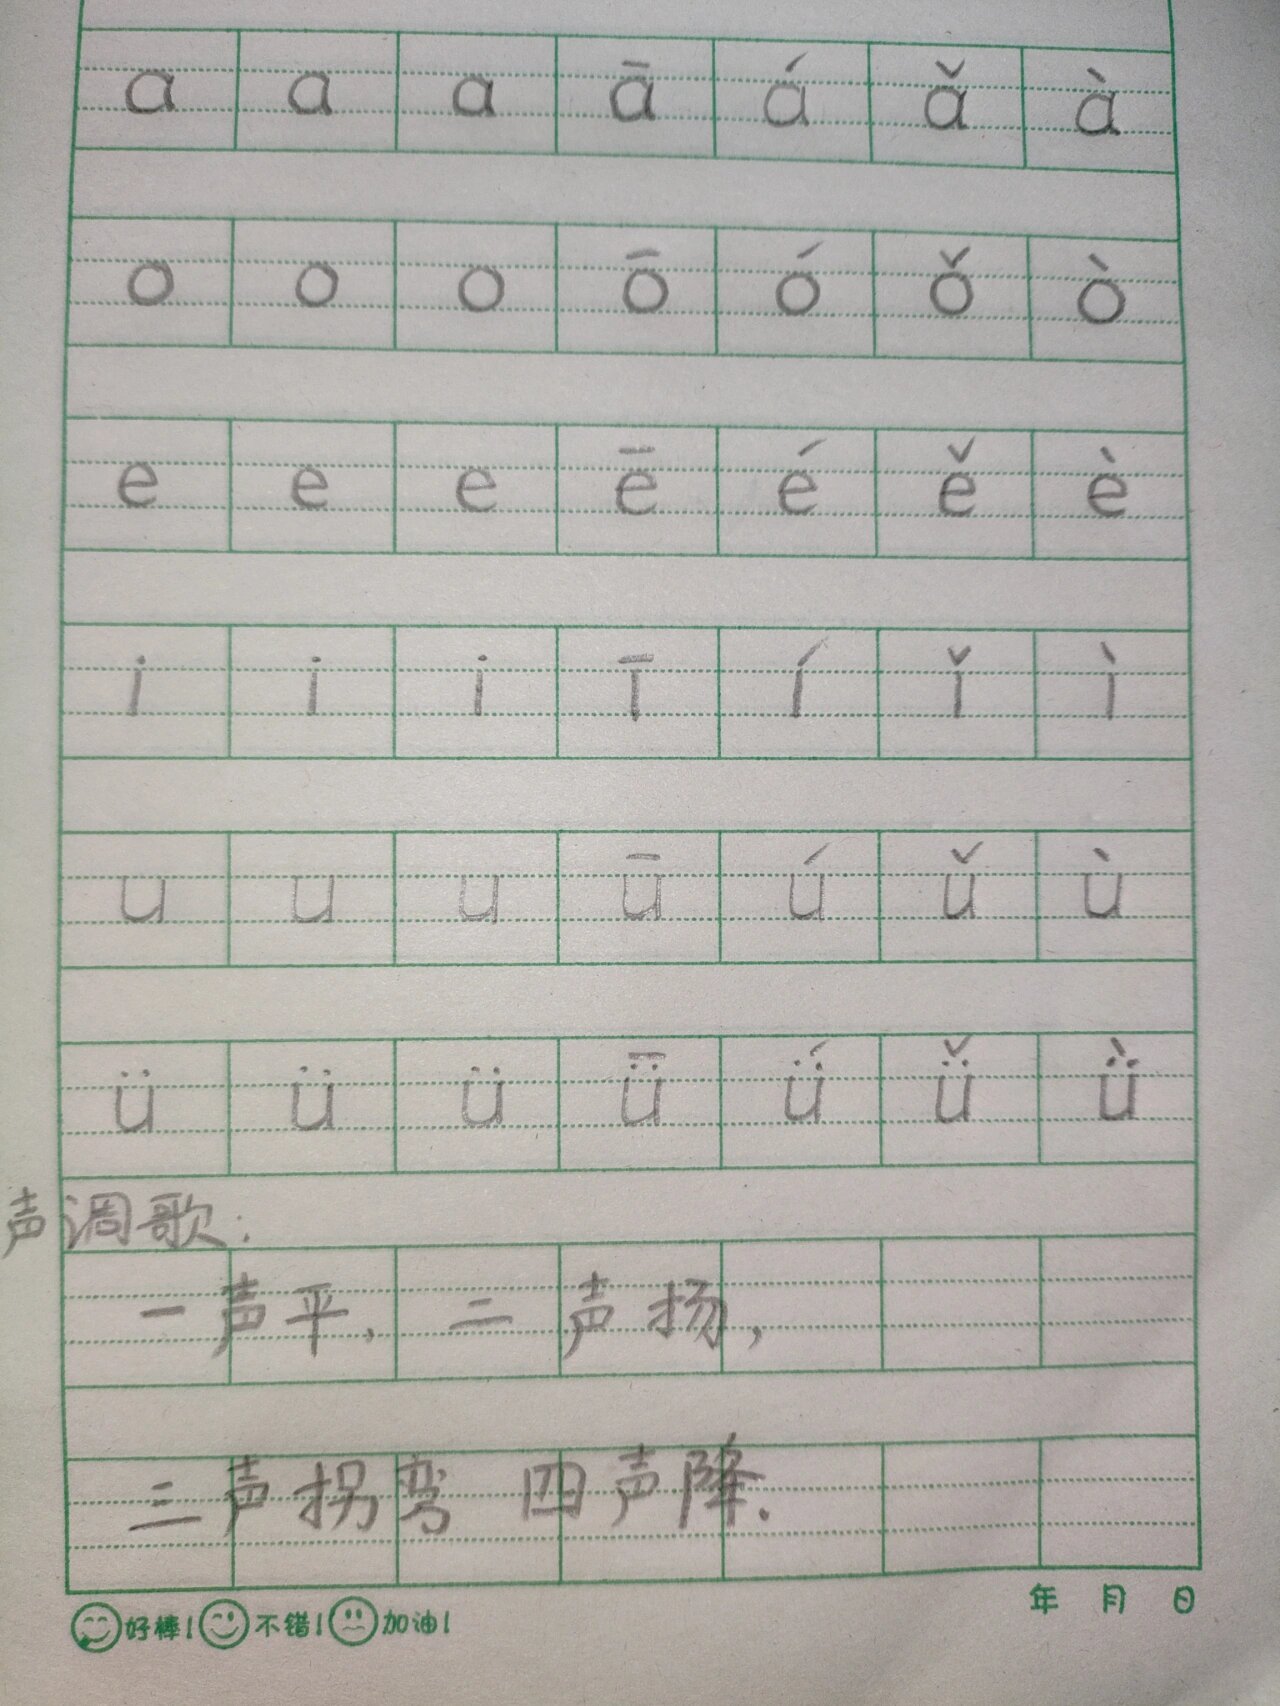 a a a ā á ǎ à
o o o ō ó ǒ ò
e e e ē é ě è
i i i ī í ǐ ì
u u u ū ú ǔ ù
ü ü ü ǖ ǘ ǚ ǜ
声调歌:
一声平, 二声扬,
三声拐弯 四声降.
年 月 日
好棒! 不错! 加油!